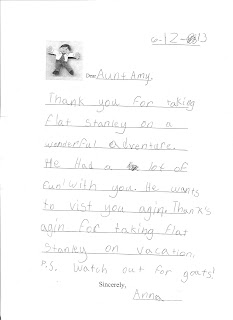 6-12-13
Dear Aunt Amy,
Thank you for taking
flat Stanley on a
wonderful adventure.
He Had a lot of
fun! with you. He wants
to vist you agin. Thank's
agin for taking flat
Stanley on vacation.
P.S. watch out for goats!
Sincerely,
Anna